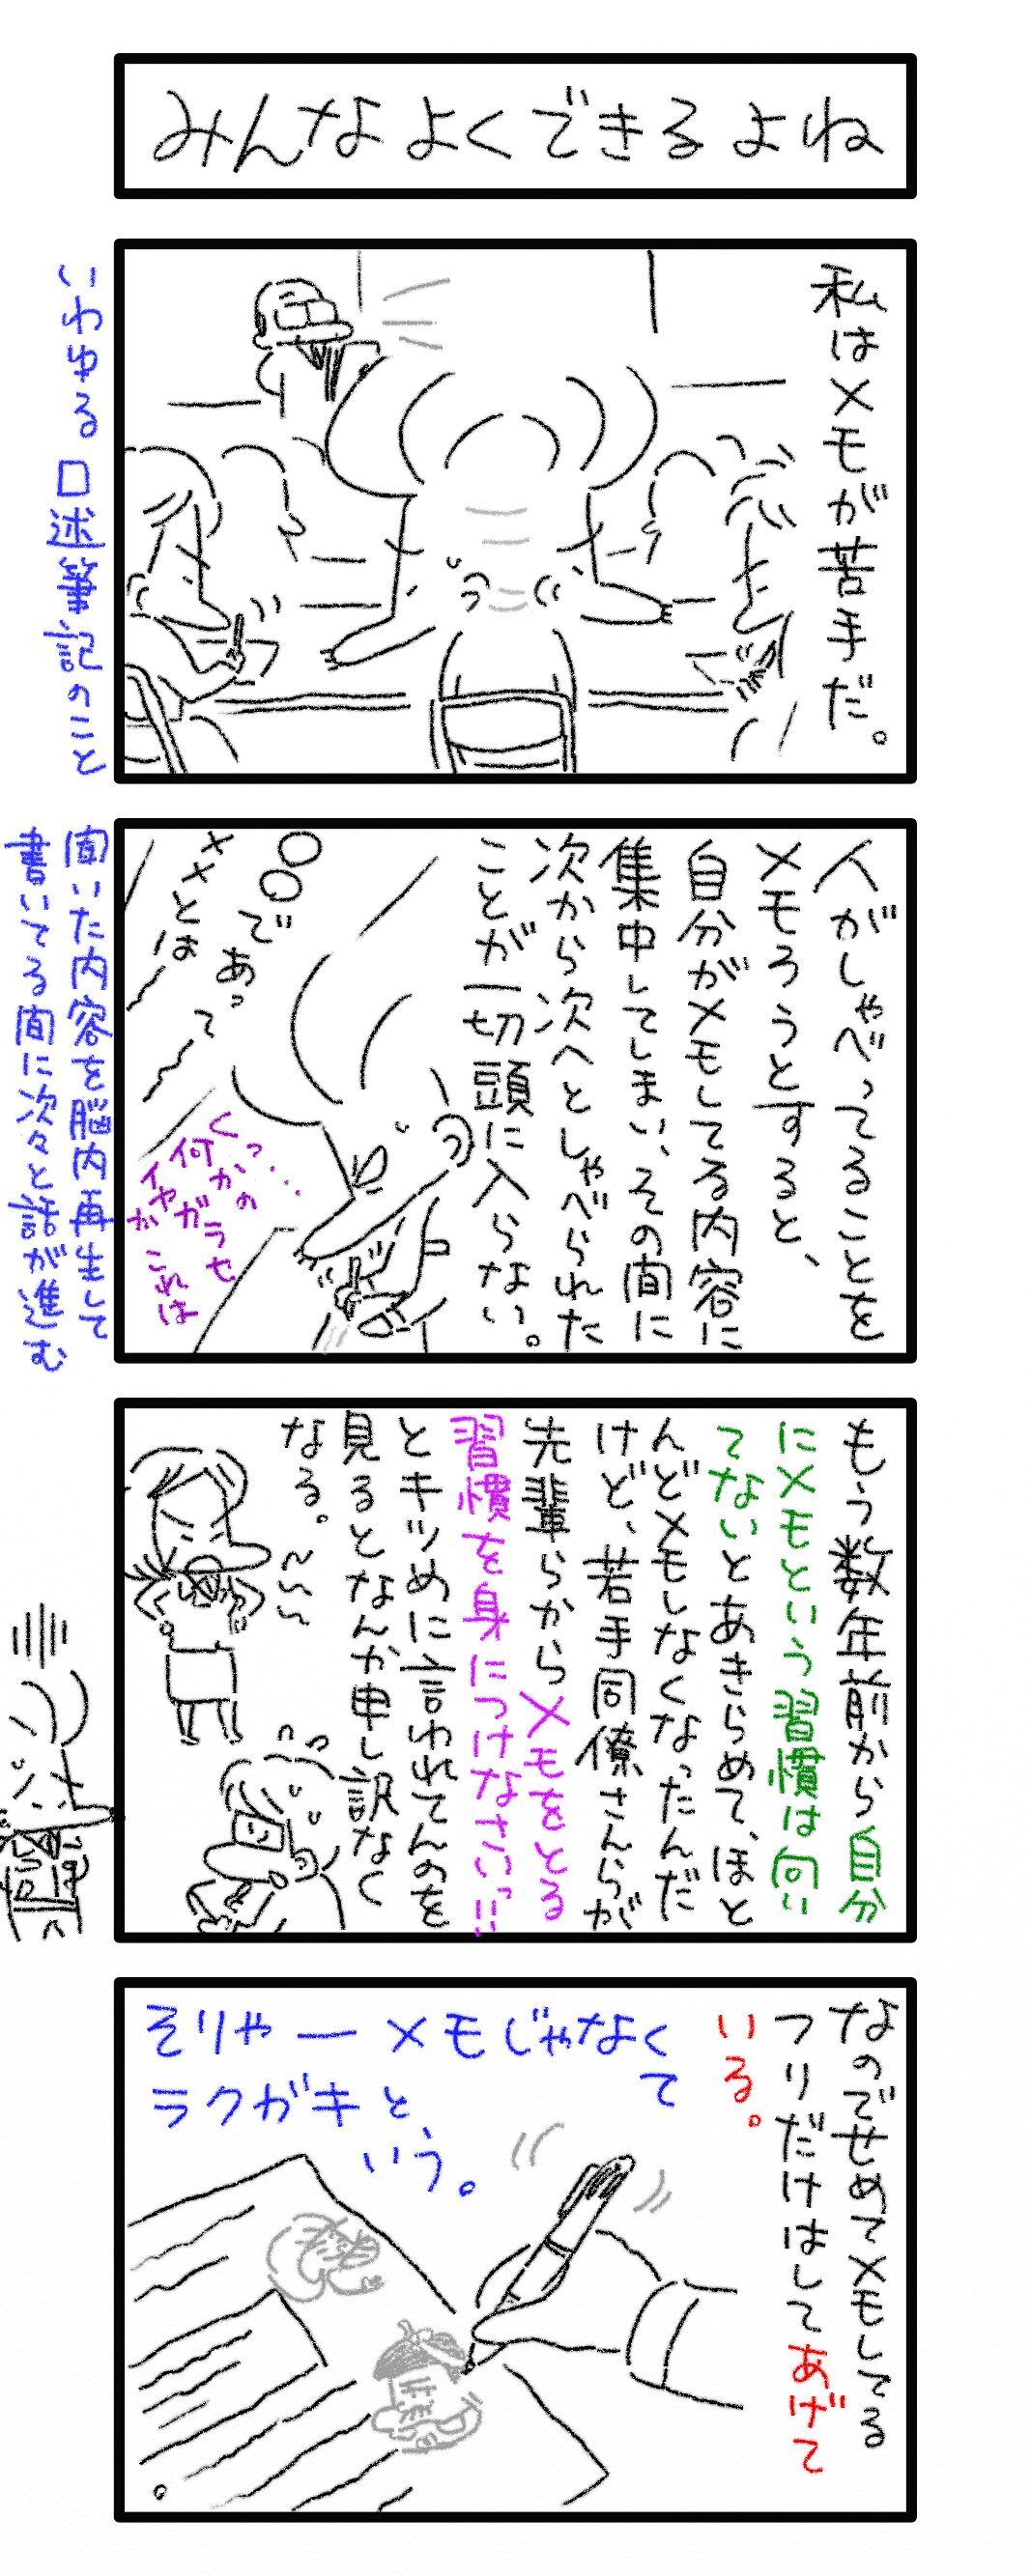 みんなよくできるよね
私はメモが苦手だ。
いわゆる口述筆記のこと
人がしゃべってることを
メモろうとすると、
自分がメモしてる内容に
集中してしまい、その間に
次から次へとしゃべられた
ことが一切頭に入らない。
○○
であって
××とは
くっ…
何かの
イヤガラセ
か
これは
聞いた内容を脳内再生して
書いてる間に次々と話が進む
もう数年前から自分
にメモという習慣は向い
てないとあきらめて、ほと
んどメモしなくなったんだ
けど、若手同僚さんらが
先輩らからメモをとる
習慣を身につけなさいっ!!
とキツめに言われてんのを
見るとなんか申し訳なく
なる。
なのでせめてメモしてる
フリだけはしてあげて
いる。
そりゃーメモじゃなくて
ラクガキと
いう。